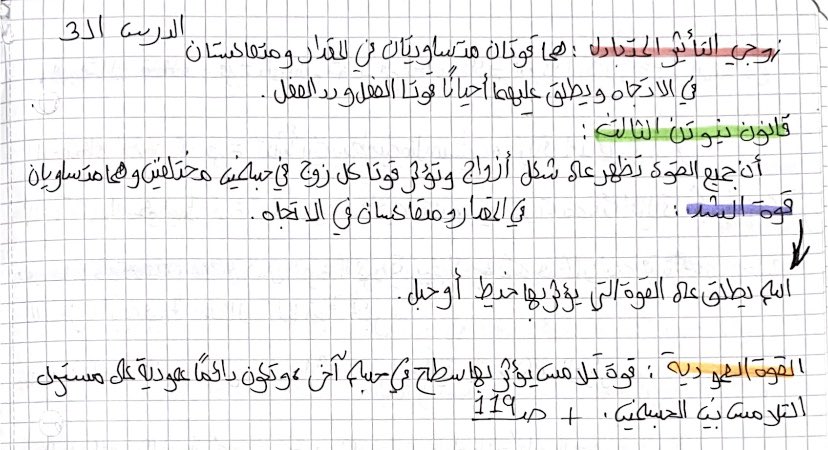 الدرس الـ3
زوجي التأثير المتبادل : هما قوتان متساويتان في المقدار ومتعاكستان
في الاتجاه ويطلق عليهما أحيانًا قوتا الفعل ورد الفعل.
قانون نيوتن الثالث :
أن جميع القوة تظهر على شكل أزواج وتؤثر قوتا كل زوج في جسمين مختلفين وهما متساويان
في المقدار ومتعاكسان في الاتجاه.
قوة الشد :
اسم يطلق على القوة التي يؤثر بها خيط أو حبل.
القوة العمودية : قوة تلامس يؤثر بها سطح في جسم آخر، وتكون دائمًا عمودية على مستوى
التلامس بين الجسمين. + صـ 119